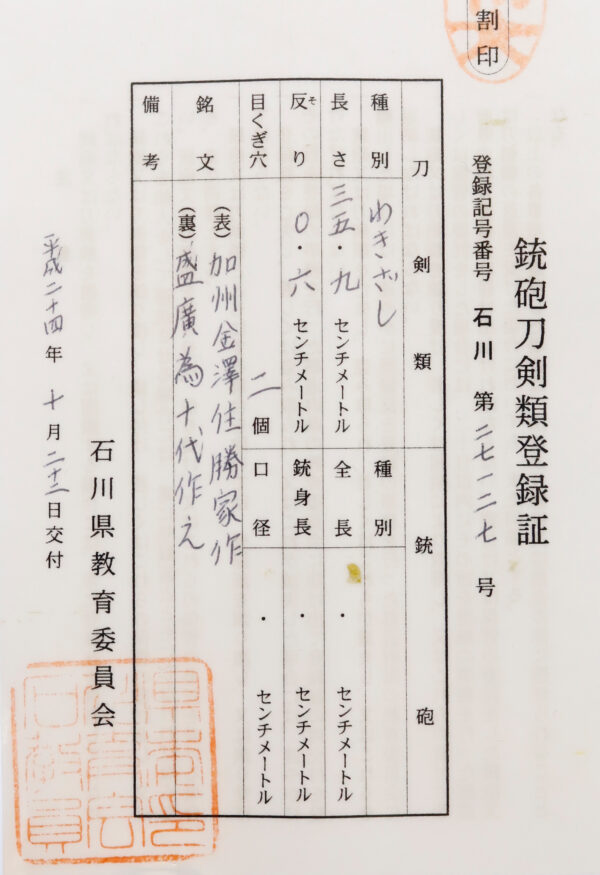 割印
銃砲刀剣類登録証
登録記号番号 石川 第 二七一二七 号
刀剣類
種別 わきざし
長さ 三五・九 センチメートル
反り 〇・六 センチメートル
そ
目くぎ穴 二 個
銘文 (表) 加州金澤住勝家作
(裏) 盛廣為十代作之
備考
銃砲
種別
全長 ・ センチメートル
銃身長 ・ センチメートル
口径 ・ センチメートル
石川県教育委員会
平成二十四年 十月二十二日交付